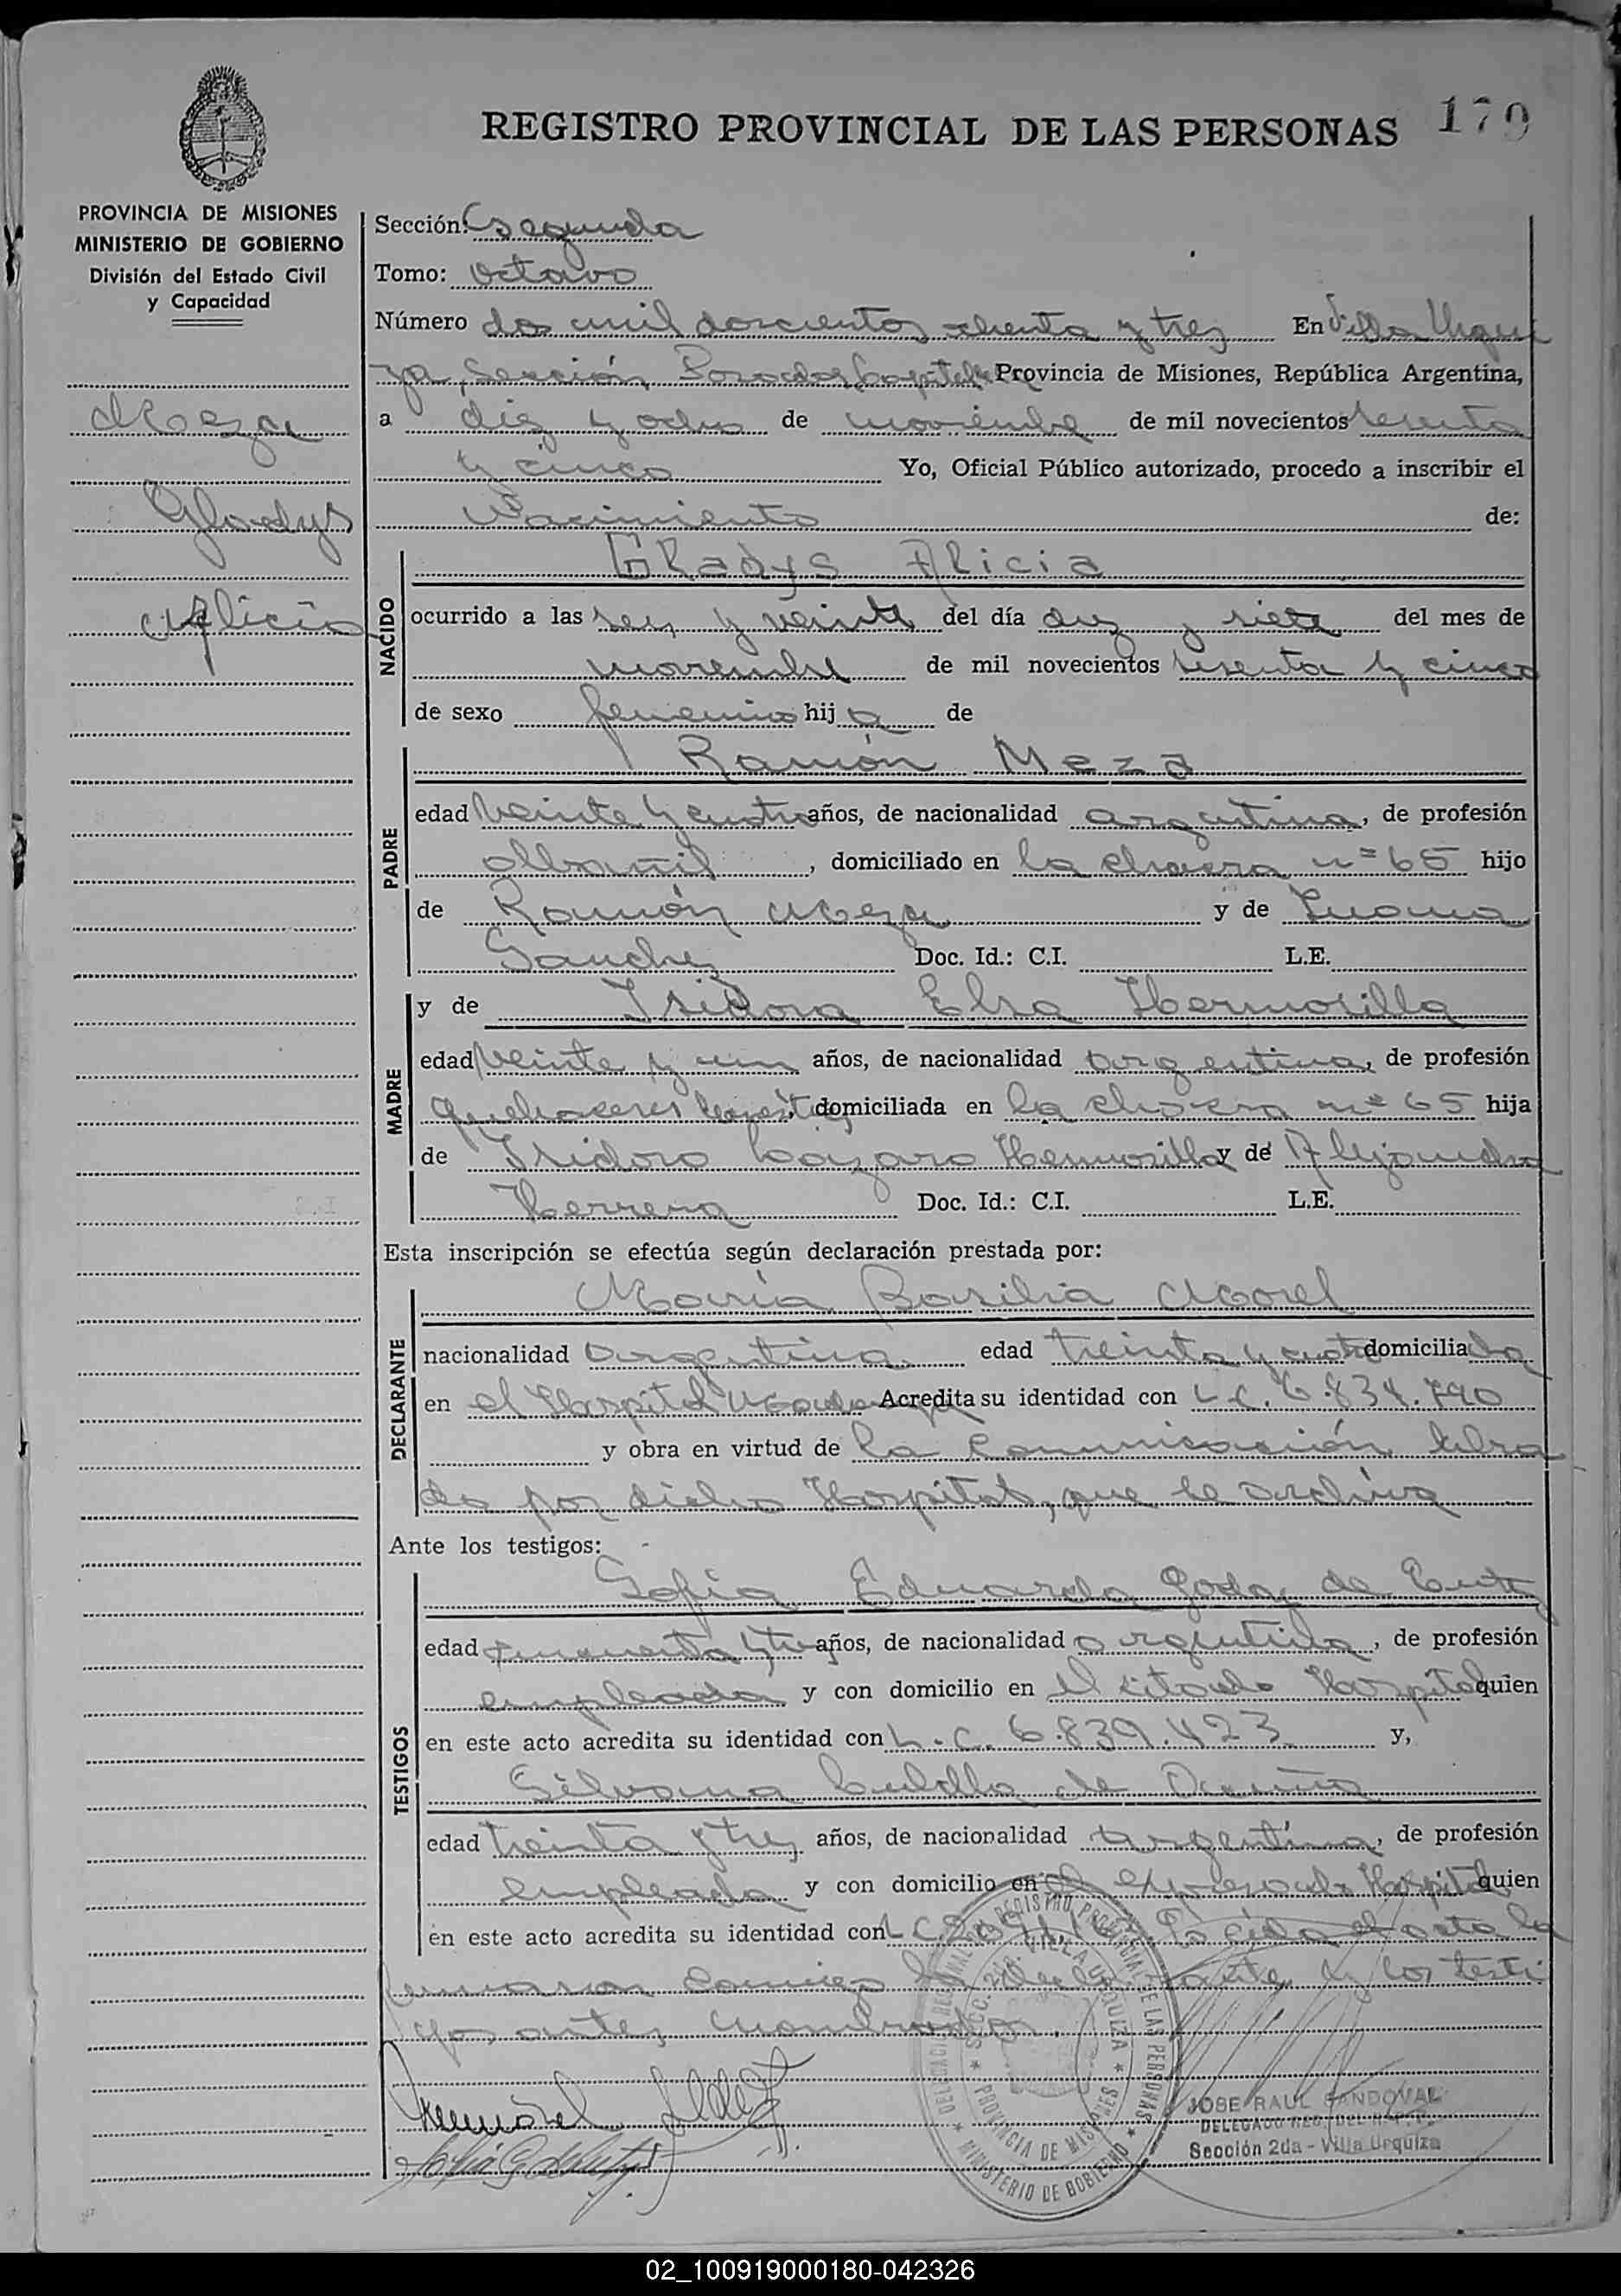 REGISTRO PROVINCIAL DE LAS PERSONAS 179
PROVINCIA DE MISIONES
MINISTERIO DE GOBIERNO
División del Estado Civil
y Capacidad
Meza
Gladys
Alicia
Sección: Segunda
Tomo: Octavo
Número dos mil doscientos ochenta y tres En Villa Urqui
za, Sección Posadas, Capital Provincia de Misiones, República Argentina,
a diez y ocho de noviembre de mil novecientos sesenta
y cinco Yo, Oficial Público autorizado, procedo a inscribir el
Nacimiento de:
NACIDO
Gladys Alicia
ocurrido a las seis y veinte del día diez y siete del mes de
noviembre de mil novecientos sesenta y cinco
de sexo femenino hija de
PADRE
Ramón Meza
edad veinte y cuatro años, de nacionalidad argentina, de profesión
albañil, domiciliado en la chacra nº 65 hijo
de Ramón Meza y de
Sanchez Doc. Id.: C.I. L.E.
MADRE
y de Isidora Elsa Hermosilla
edad veinte y un años, de nacionalidad argentina, de profesión
quehaceres domésticos, domiciliada en la chacra nº 65 hija
de Isidoro Lázaro Hermosilla y de Alejandra
Herrera Doc. Id.: C.I. L.E.
Esta inscripción se efectúa según declaración prestada por:
DECLARANTE
María Basilia Morel
nacionalidad argentina edad treinta y cuatro domiciliada
en el Hospital Madariaga Acredita su identidad con L.C. 6.834.790
y obra en virtud de la comunicación libra
da por dicho Hospital, que se archiva
Ante los testigos:
TESTIGOS
Sofía Eduarda Godoy de
edad cincuenta y tres años, de nacionalidad argentina, de profesión
empleada y con domicilio en el citado Hospital quien
en este acto acredita su identidad con L.C. 6.839.423 y,
Silvana de Acuña
edad treinta y tres años, de nacionalidad argentina, de profesión
empleada y con domicilio en el expresado Hospital quien
en este acto acredita su identidad con L.C. Leída el acta la
firmaron conmigo la declarante y los testi
gos antes nombrados.
DELEGACION REGIONAL DEL REGISTRO PROVINCIAL DE LAS PERSONAS
SECC. 2da. VILLA URQUIZA
PROVINCIA DE MISIONES
MINISTERIO DE GOBIERNO
JOSE RAUL SANDOVAL
DELEGADO REG. DEL R.P.P.
Sección 2da - Villa Urquiza
02_100919000180-042326